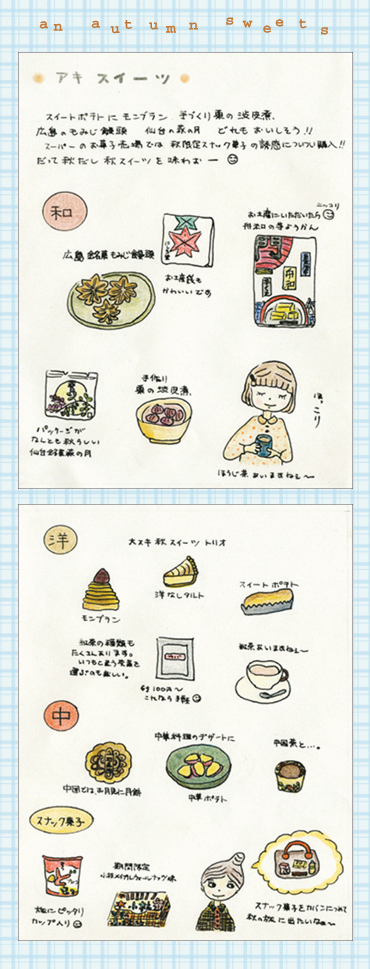 an autumn sweets
アキ スイーツ
スイートポテトにモンブラン 手づくり栗の渋皮煮、
広島のもみじ饅頭 仙台の萩の月 どれもおいしそう!!
スーパーのお菓子売場では 秋限定スナック菓子の誘惑についつい購入!!
だって秋だし 秋スイーツを味わおー
和
広島銘菓もみじ饅頭
お土産袋も
かわいいです
ニッコリ
お土産にいただいたら
舟和の芋ようかん
舟和
パッケージが
なんとも秋らしい
仙台銘菓萩の月
手作り
栗の渋皮煮、
ほ、こり
ほうじ茶 あいますね〜
洋
大スキ 秋 スイーツ トリオ
モンブラン
洋なしタルト
スイート ポテト
紅茶の種類も
たくさんあります。
いつもと違う茶葉を
選ぶのも楽しい。
紅茶あいますねぇ〜
中
中華料理のデザートに
中国茶と…。
中国では、お月見に月餅
中華ポテト
スナック菓子
旅にピッタリ
カップ入り
期間限定
スナック菓子をカバンにつめて
秋の旅に出たいなぁ〜